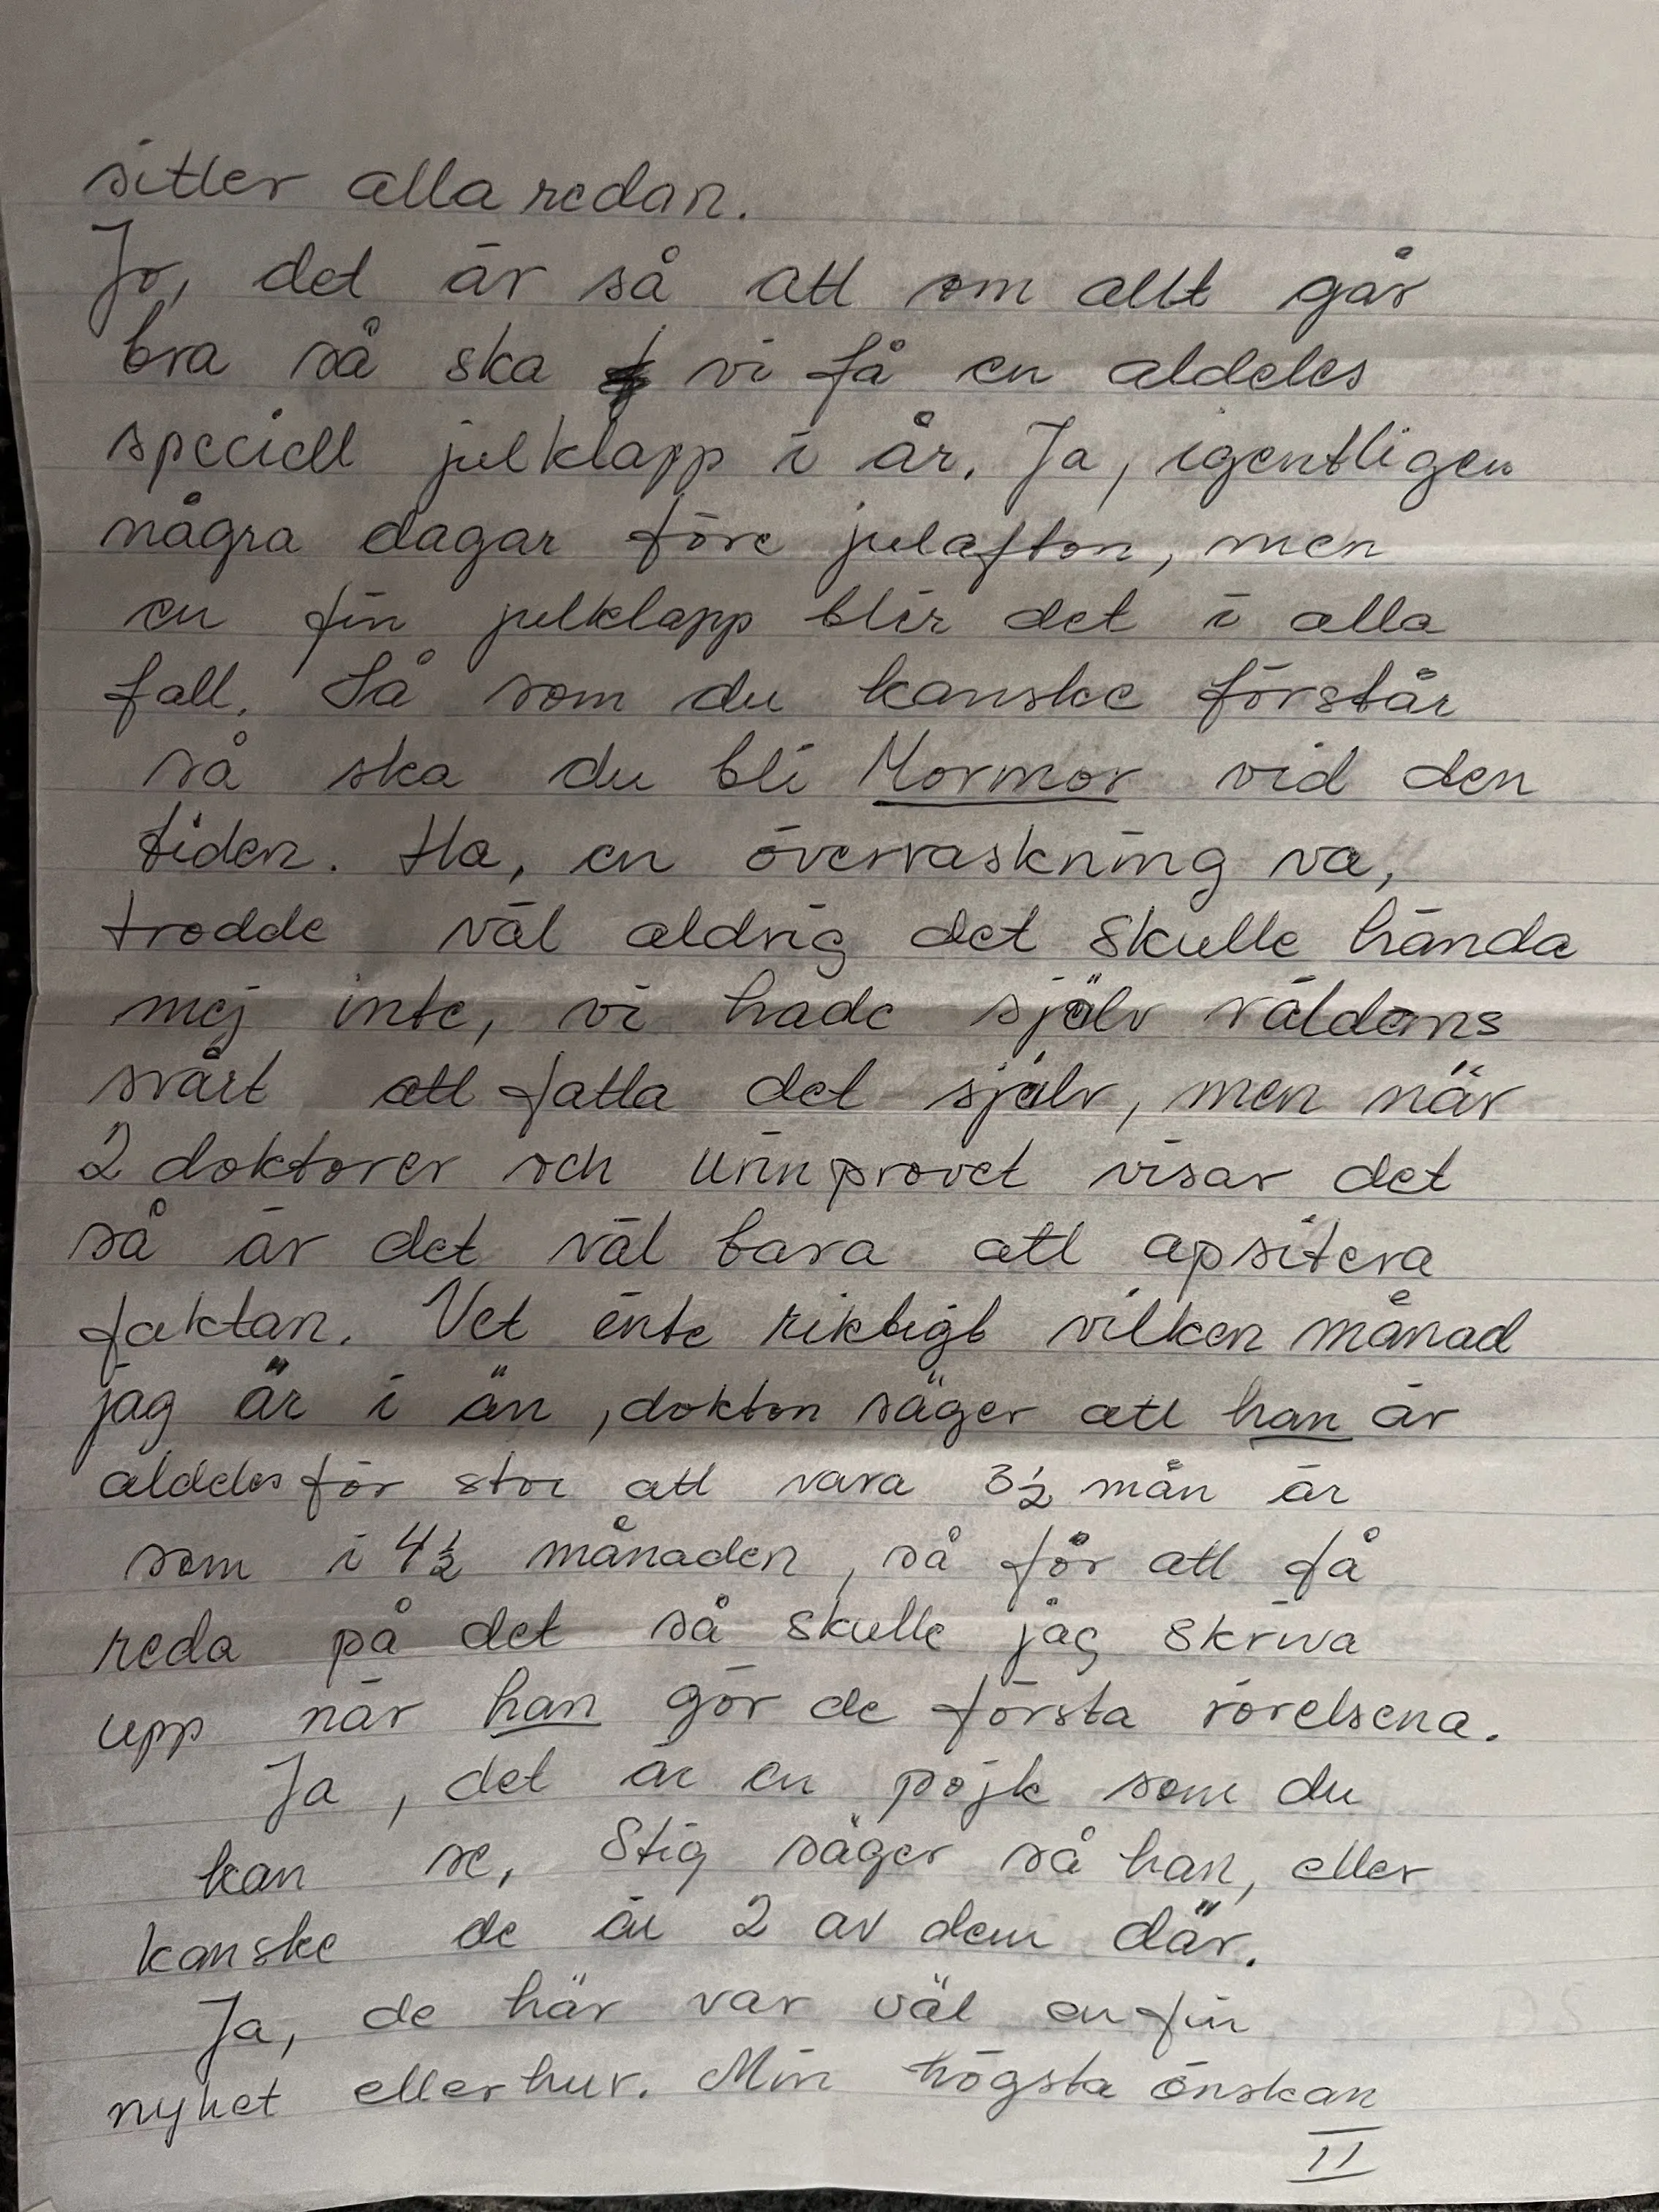 sitter alla redan.
Jo, det är så att om allt går
bra så ska vi få en aldeles
speciell julklapp i år. Ja, igentligen
några dagar före julafton, men
en fin julklapp blir det i alla
fall. Så som du kanske förstår
så ska du bli Mormor vid den
tiden. Ha, en överraskning va,
trodde väl aldrig det skulle hända
mej inte, vi hade själv väldens
svårt att fatta det själv, men när
2 doktorer och urinprovet visar det
så är det väl bara att apsitera
faktan. Vet inte riktigt vilken månad
jag är i än, doktorn säger att han är
aldeles för stor att vara 3½ mån är
som i 4½ månaden, så för att få
reda på det så skulle jag skriva
upp när han gör de första rörelsena.
Ja, det är en pojk som du
kan se, Stig säger så han, eller
kanske de är 2 av dem där.
Ja, de här var väl en fin
nyhet eller hur. Min högsta önskan
II